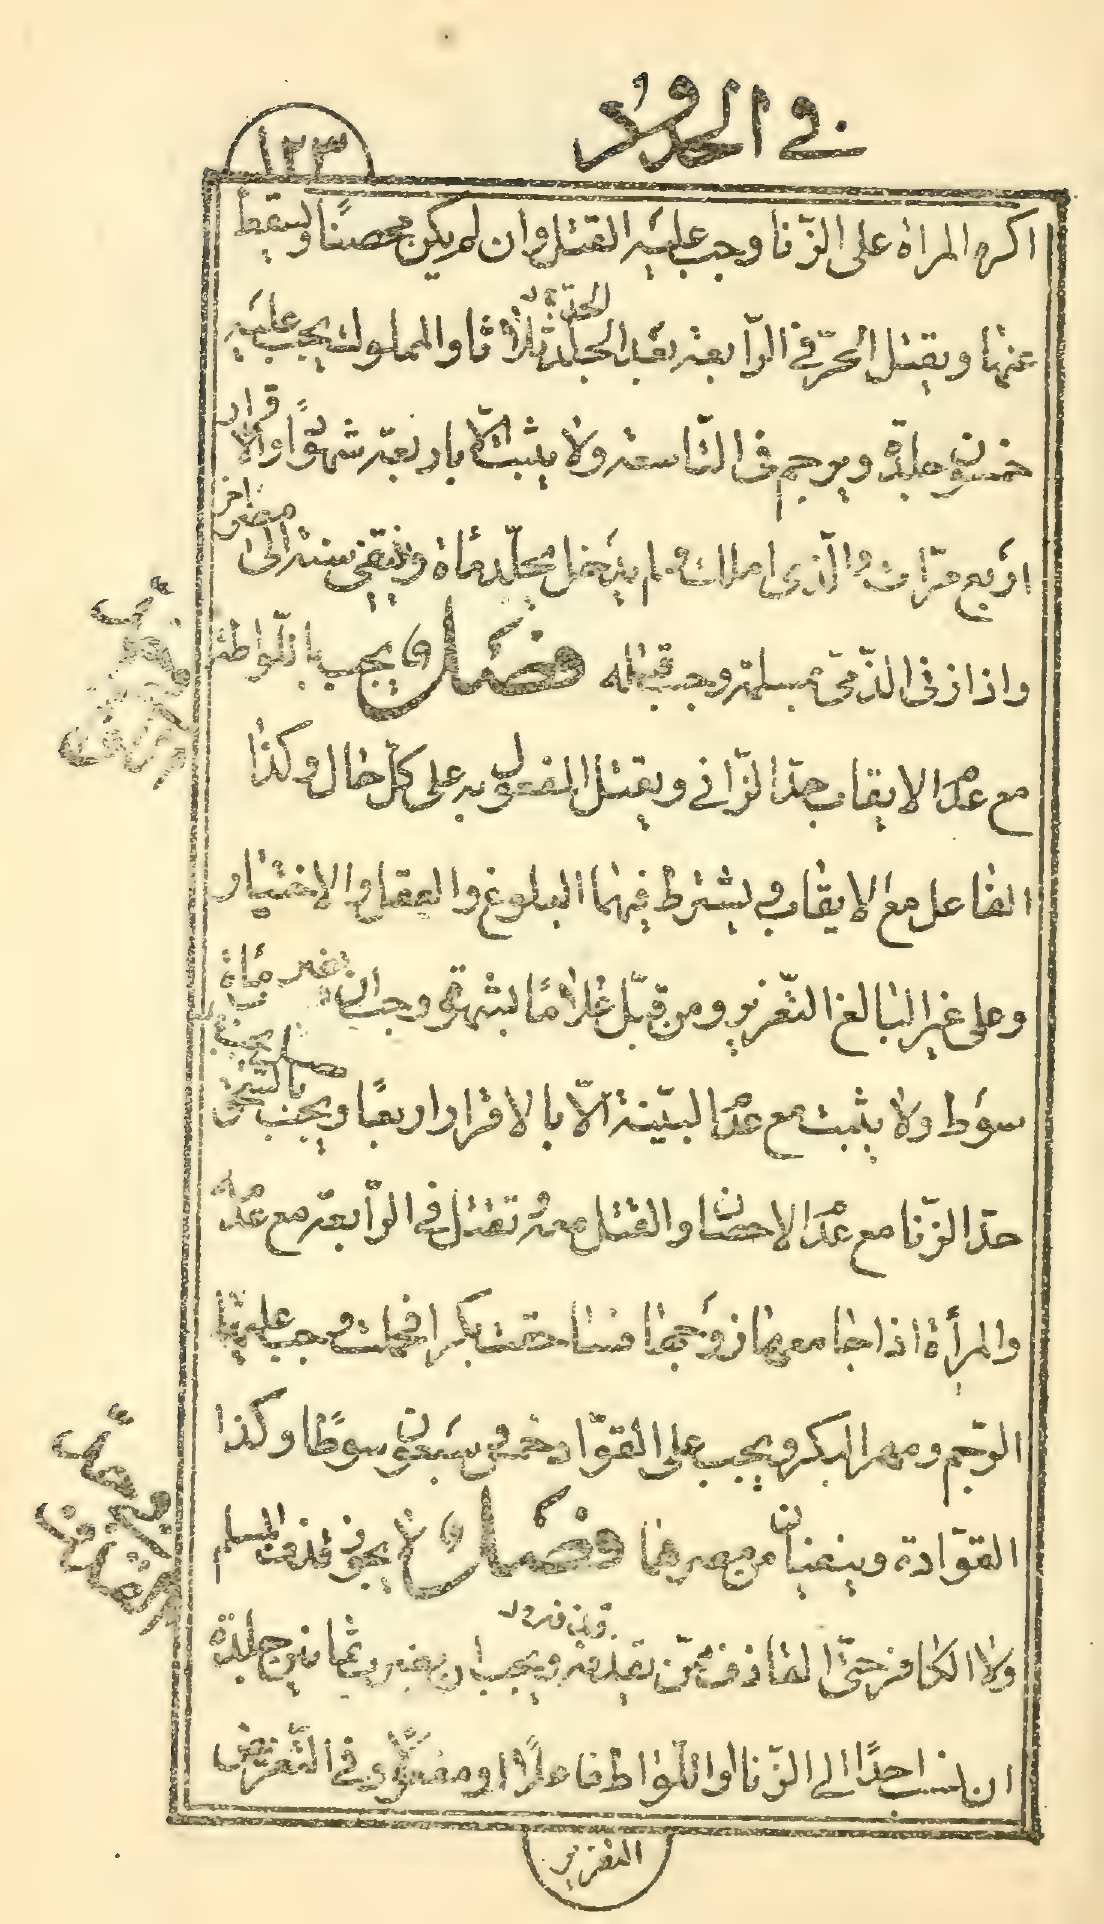 في الحدود
١٢٣
اكره المراة على الزّنا وجب عليه القتل وان لم يكن محصنًا ويسقط
عنها ويقتل الحرّ في الرّابعة بعد الحدّ ثلاثا والمملوك يجب عليه
خمسون جلدة ويرجم في التّاسعة ولا يثبت الّا باربعة شهودًا والاقرار
اربع مرّات والّذي املك ولم يدخل يجلّد مأة وينفى سنة الى
واذا زنى الذّمّى بمسلمة وجب قتله فصل ويجب باللّواطة
مع عدم الايقاب حدّ الزّاني ويقتل المفعول به على كلّ حال وكذا
الفاعل مع الايقاب ويشترط فيهما البلوغ والعقل والاختيار
وعلى غير البالغ التّعزير ومن قبّل غلامًا بشهوة وجب ان مأة
سوط ولا يثبت مع عدم البيّنة الّا بالاقرار اربعًا ويجب
حدّ الزّنا مع عدم الاحصان والقتل معه وتقتل في الرّابعة مع عدمه
والمرأة اذا جامعها زوجها فساحقت بكرا فحملت وجب عليها
الرّجم ومهر البكر ويجب على القوّاد خمس وسبعون سوطًا وكذا
القوّادة وينفيان من مصرهما فصل يجوز قذف المسلم
ولا الكافر حتّى القاذف ممّن يقذفه ويجب ان بثمانين جلدة
ان نسب احدًا الى الزّنا او اللّواط فاعلًا او مفعولًا وفي التّعريض
التعزير